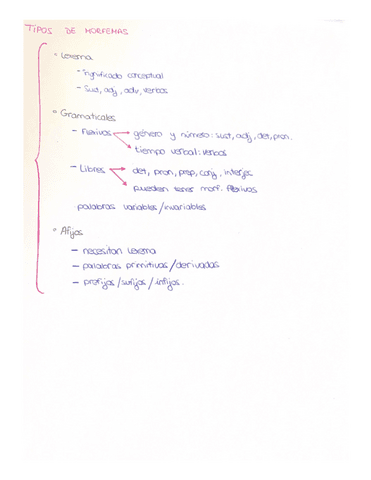 TIPOS DE MORFEMAS
◦ Lexema
- Significado conceptual
- Sust, adj, adv, verbos
◦ Gramaticales
- Flexivos → género y número: sust, adj, det, pron.
→ tiempo verbal: verbos
- Libres → det, pron, prep, conj, interjec
→ pueden tener morf. flexivos
palabras variables/invariables
◦ Afijos
- necesitan lexema
- palabras primitivas/derivadas
- prefijos/sufijos/infijos.